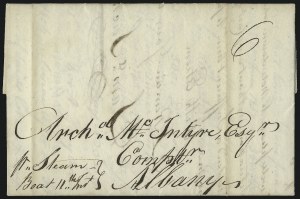 6
Archd. Mc. Intyre, Esqr.
Compr.
Albany
pr. Steam
Boat 11th